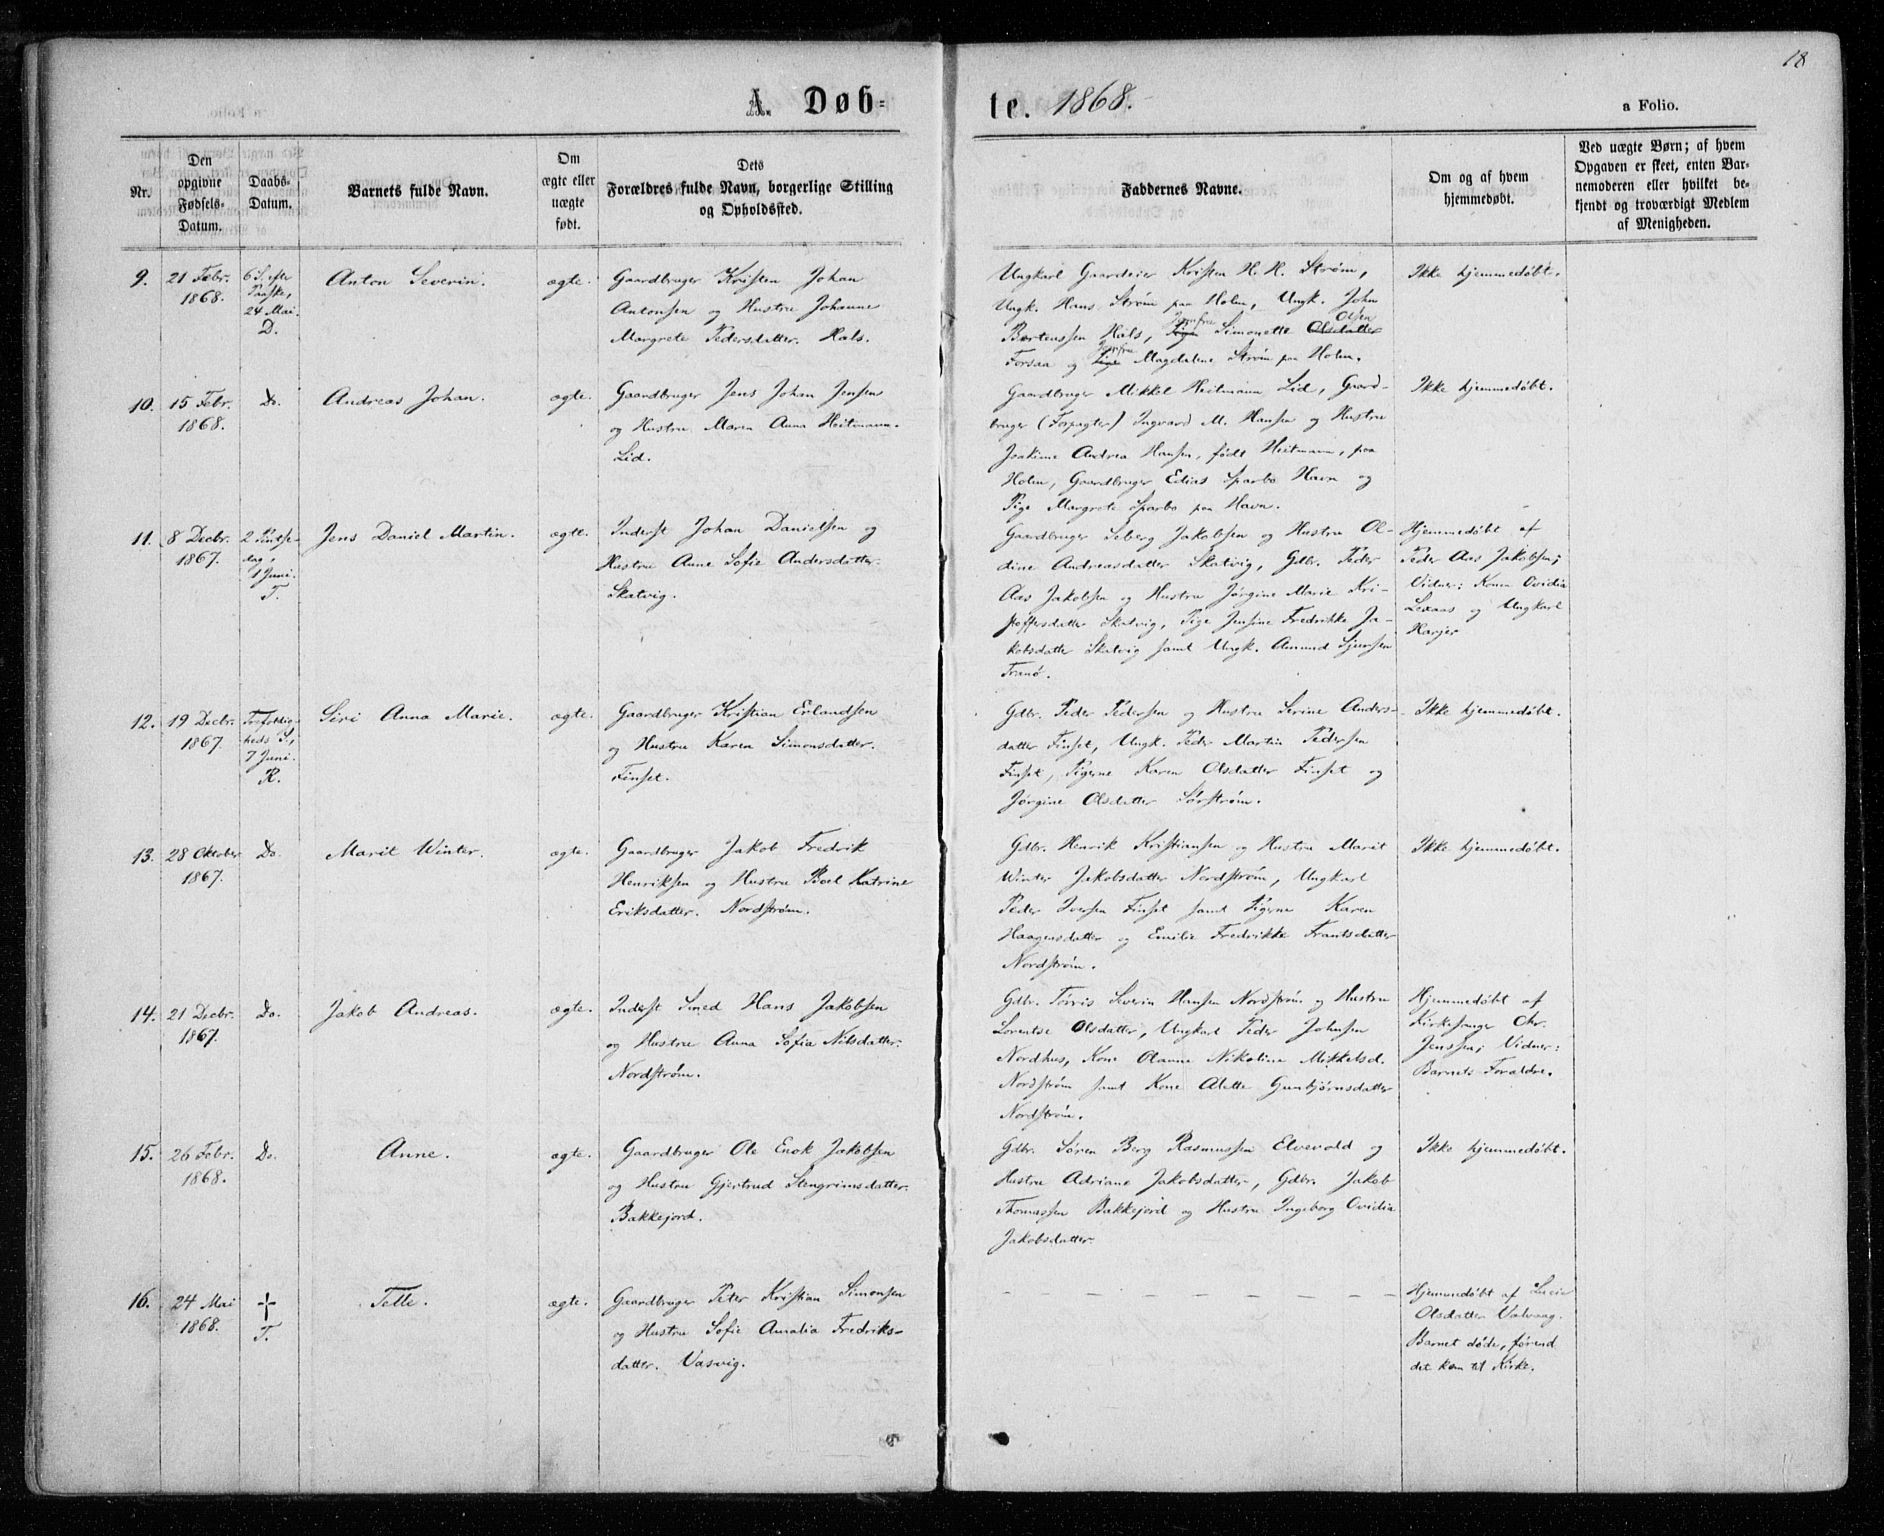 18
A. Døb-
te. 1868.
a Folio.
Nr.
Den
opgivne
Fødsels-
Datum.
Daabs-
Datum.
Barnets fulde Navn.
Om
ægte eller
uægte
født.
Dets
Forældres fulde Navn, borgerlige Stilling
og Opholdssted.
Faddernes Navne.
Om og af hvem
hjemmedøbt.
Ved uægte Børn; af hvem
Opgaven er skeet, enten Bar-
nemoderen eller hvilket be-
kjendt og troværdigt Medlem
af Menigheden.
9.
21 Febr.
1868.
6 S. efter
Paaske,
24 Mai.
D.
Anton Severin.
ægte.
Gaardbruger Kristen Johan
Antonsen og Hustru Johanne
Margrete Pedersdatter. Hals.
Ungkarl Gaardeier Kristen H. H. Strøm,
Ungk. Hans Strøm paa Holm, Ungk. John
Berteussen Hals, Pige Jomfru Simonette Olsdatter Olsen
Forsaa og Pige Jomfru Magdalene Strøm paa Holm.
Ikke hjemmedøbt.
10.
15 Febr.
1868.
Do.
Andreas Johan.
ægte.
Gaardbruger Jens Johan Jensen
og Hustru Maren Anna Heitmann.
Lid.
Gaardbruger Mikkel Heitmann Lid, Gaard-
bruger (Forpagter) Ingvard M. Hansen og Hustru
Joakime Andrea Hansen, født Heitmann, paa
Holm, Gaardbruger Edias Sparbo Havn og
Pige Margrete Sparbo paa Havn.
Ikke hjemmedøbt.
11.
8 Decbr.
1867.
2 Pintse-
dag,
1 Juni.
T.
Jens Daniel Martin.
ægte.
Inderst Johan Danielsen og
Hustru Anne Sofie Andersdatter.
Skatvig.
Gaardbruger Seberg Jakobsen og Hustru Ol-
dine Andreasdatter Skatvig, Gdbr. Peder
Aas Jakobsen og Hustru Jørgine Marie Kri-
stoffersdatter Skatvig, Pige Jensine Fredrikke Ja-
kobsdatter Skatvig samt Ungk. Amund Sjursen
Tranø.
Hjemmedøbt af
Peder Aas Jakobsen;
Vidner: Konen Ovidia
Lexaas og Ungkarl
12.
19 Decbr.
1867.
Trefoldig-
heds S,
7 Juni.
R.
Siri Anna Marie.
ægte.
Gaardbruger Kristian Erlandsen
og Hustru Karen Simonsdatter.
Finset.
Gdbr. Peder Pedersen og Hustru Serine Anders-
datter Finset, Ungk. Peder Martin Pedersen
Finset, Pigerne Karen Olsdatter Finset og
Jørgine Olsdatter Sørstrøm.
Ikke hjemmedøbt.
13.
28 Oktober
1867.
Do.
Marit Winter.
ægte.
Gaardbruger Jakob Fredrik
Henriksen og Hustru Boel Katrine
Eriksdatter. Nordstrøm.
Gdbr. Henrik Kristiansen og Hustru Marit
Winter Jakobsdatter Nordstrøm, Ungkarl
Peder Iversen Finset samt Pigerne Karen
Haagensdatter og Emilie Fredrikke Frantsdatter
Nordstrøm.
Ikke hjemmedøbt.
14.
21 Decbr.
1867.
Do.
Jakob Andreas.
ægte.
Inderst Smed Hans Jakobsen
og Hustru Anna Sofia Nilsdatter.
Nordstrøm.
Gdbr. Torris Severin Hansen Nordstrøm og Hustru
Lorentse Olsdatter, Ungkarl Peder Johnsen
Nordhus, Kone Olanne Nikoline Mikkelsd.
Nordstrøm samt Kone Alette Gunbjørnsdatter
Nordstrøm.
Hjemmedøbt af
Kirkesanger Chr.
Jenssen; Vidner:
Barnets Forældre.
15.
26 Febr.
1868.
Do.
Anne.
ægte.
Gaardbruger Ole Enok Jakobsen
og Hustru Gjertrud Stengrimsdatter.
Bakkejord.
Gdbr. Søren Berg Rasmussen Elvevold og
Hustru Adriane Jakobsdatter, Gdbr. Jakob
Thomassen Bakkejord og Hustru Ingeborg Ovidia
Jakobsdatter.
Ikke hjemmedøbt.
16.
24 Mai
1868.
†
T.
Telle.
ægte.
Gaardbruger Peter Kristian Simonsen
og Hustru Sofie Amalia Fredriks-
datter. Vasvig.
– – – – – – – – –
Hjemmedøbt af Lucie
Olsdatter Valvaag.
Barnet døde, førend
det kom til Kirke.